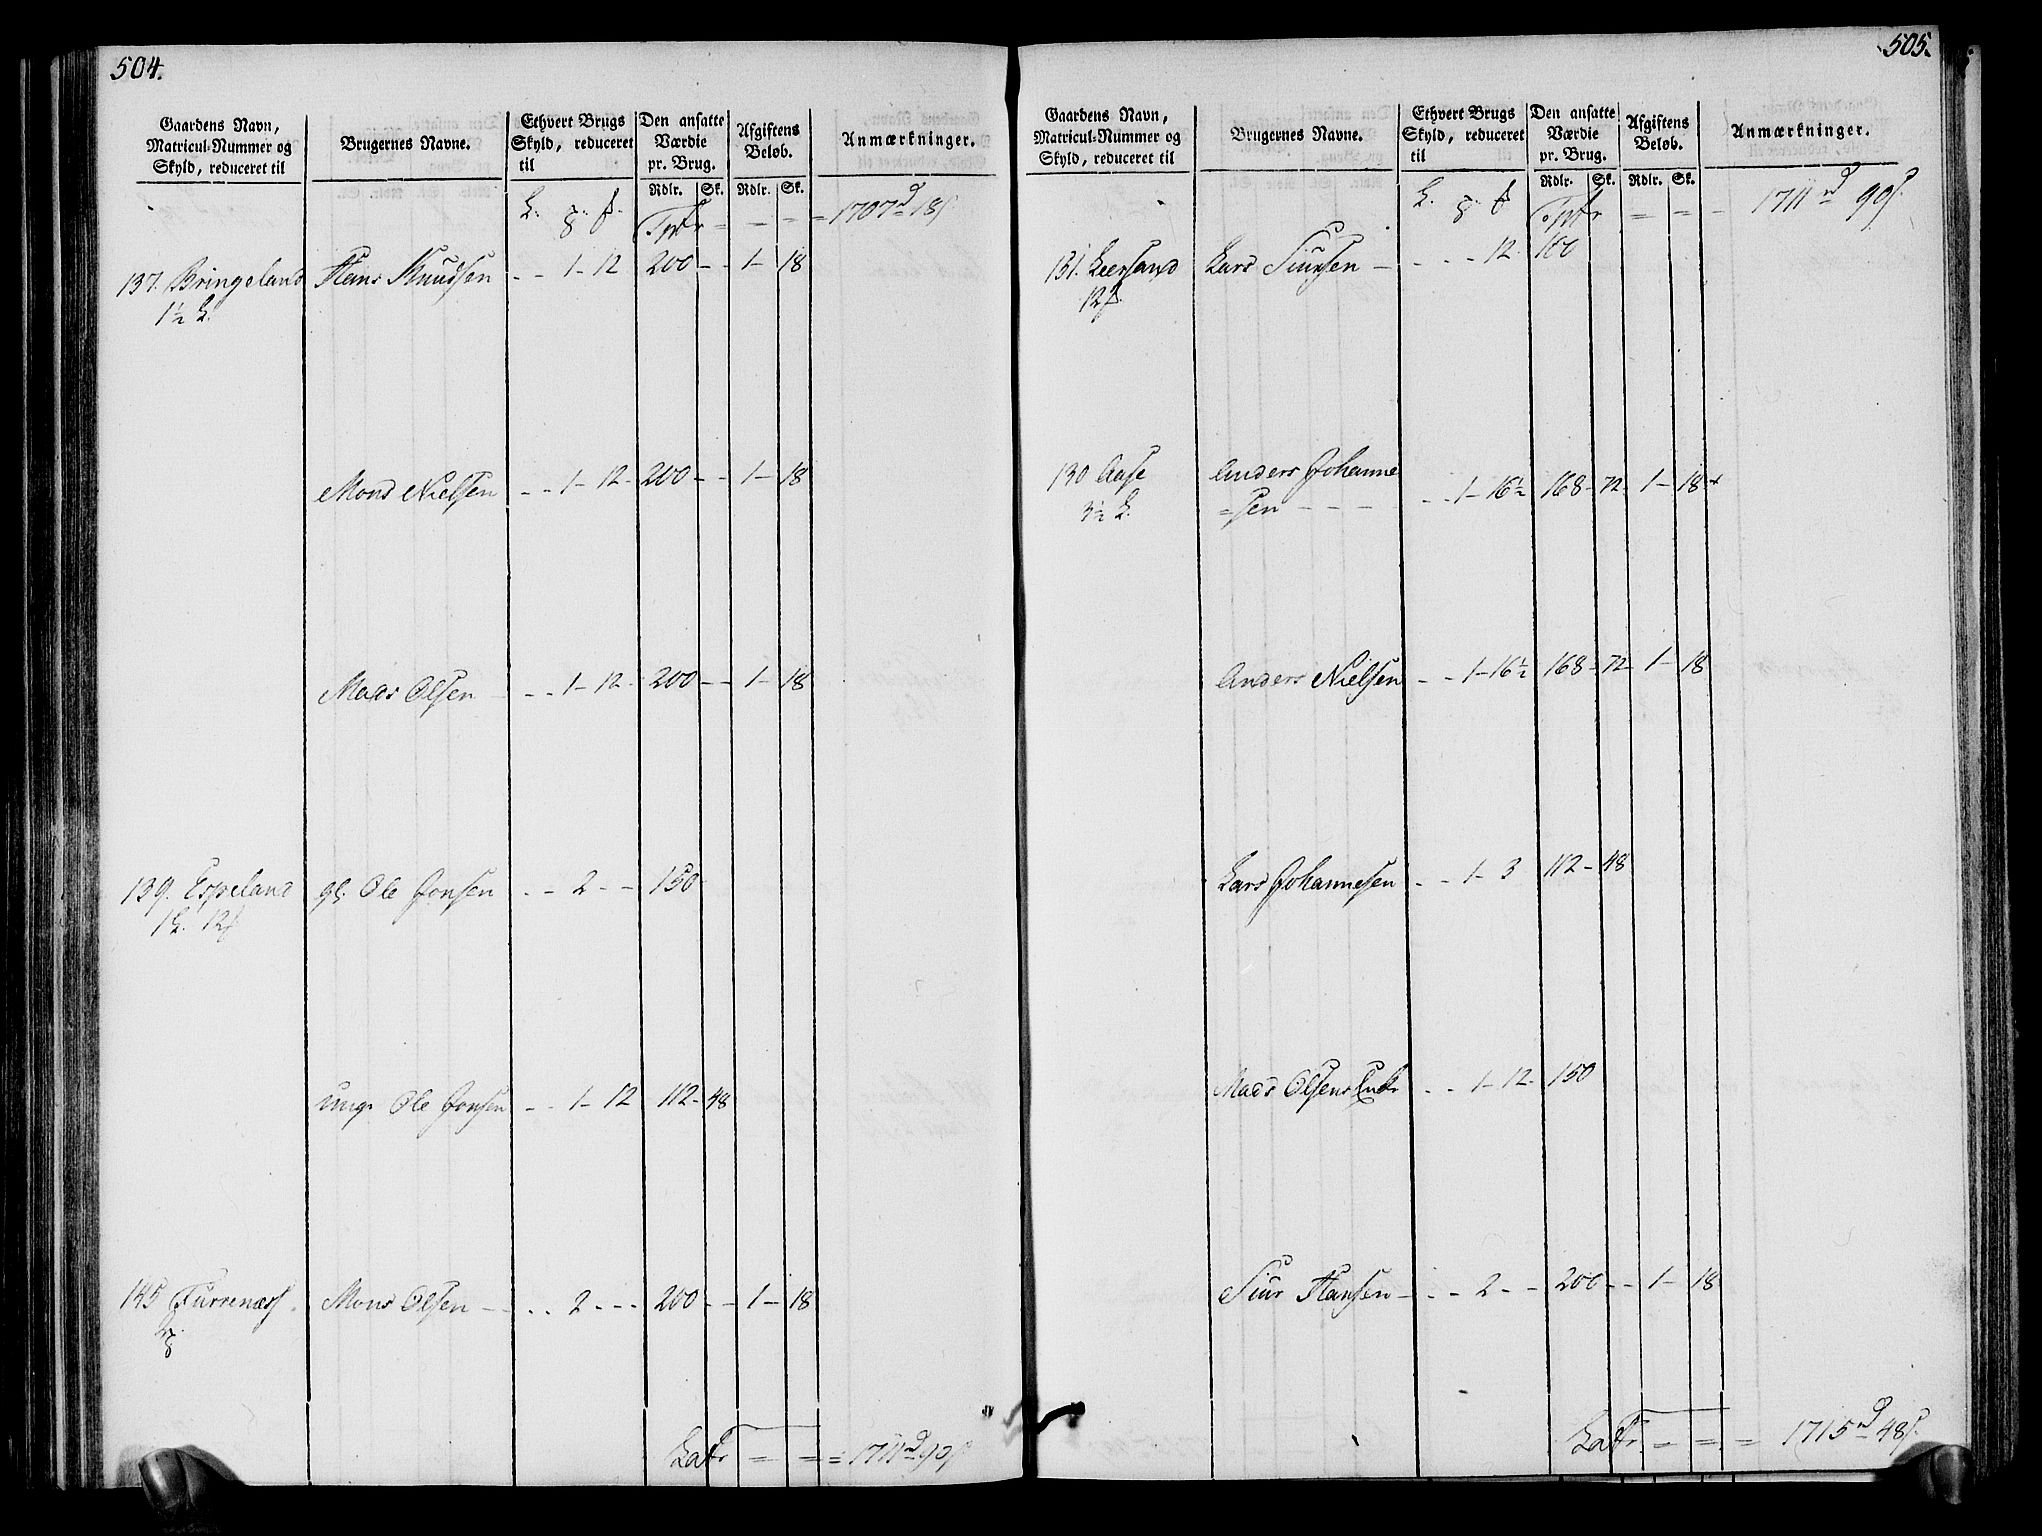 504.
Gaardens Navn, Matricul-Nummer og Skyld, reduceret til | Brugernes Navne. | Ethvert Brugs Skyld, reduceret til | Den ansatte Værdie pr. Brug. | Afgiftens Beløb. | Anmærkninger.
Rdlr. Sk. Rdlr. Sk.
Tpfr = = = 1707 18
137. Bringeland Hans Knudsen - - 1 - 12 200 - - 1 - 18
1½ L.
Mons Nielsen - - 1 - 12 - 200 - - 1 - 18
Mads Olsen - - 1 - 12 - 200 - - 1 - 18
139. Espeland gl. Ole Jonsen - - 2 - - 150
1 L. 12
unge Ole Jonsen - - 1 - 12 112 - 48
145 Furrenæss Mons Olsen - - - 2 - - - 200 - - 1 - 18
Latr = = = 1711 90
505.
Gaardens Navn, Matricul-Nummer og Skyld, reduceret til | Brugernes Navne. | Ethvert Brugs Skyld, reduceret til | Den ansatte Værdie pr. Brug. | Afgiftens Beløb. | Anmærkninger.
Rdlr. Sk. Rdlr. Sk.
Tpfr = = - 1711 90
131. Leersand Lars Siursen - - - - 12 100
130 Aase Anders Johanne
3½ L. =sen - - - - - 1 - 16½ 168 - 72 - 1 - 18
Anders Nielsen - - 1 - 16½ 168 - 72 - 1 - 18
Lars Johannesen - - 1 - 3 112 - 48
Mads Olsens Enke - - 1 - 12 - 150
Siur Hansen - - - 2 - - 200 - - 1 - 18
Latr. = = = 1715 48